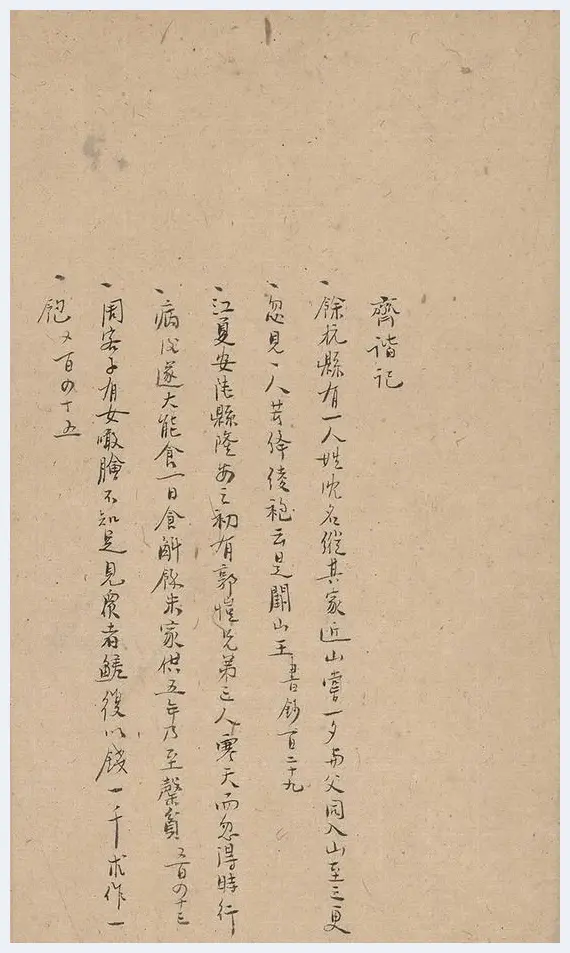 齊諧記
餘杭縣有一人姓沈名縱其家近山嘗一夕與父同入山至三更
忽見一人着絳綾袍云是鬭山王 書鈔百二十九
江夏安陸縣隆安之初有郭愷兄弟三人寒天而忽得時行
病後遂大能食一日食斛餘米家供五年乃至罄貧 又百四十三
周客子有女噉膾不知足見賣者鱔復以錢一千求作一
飽 又百四十五